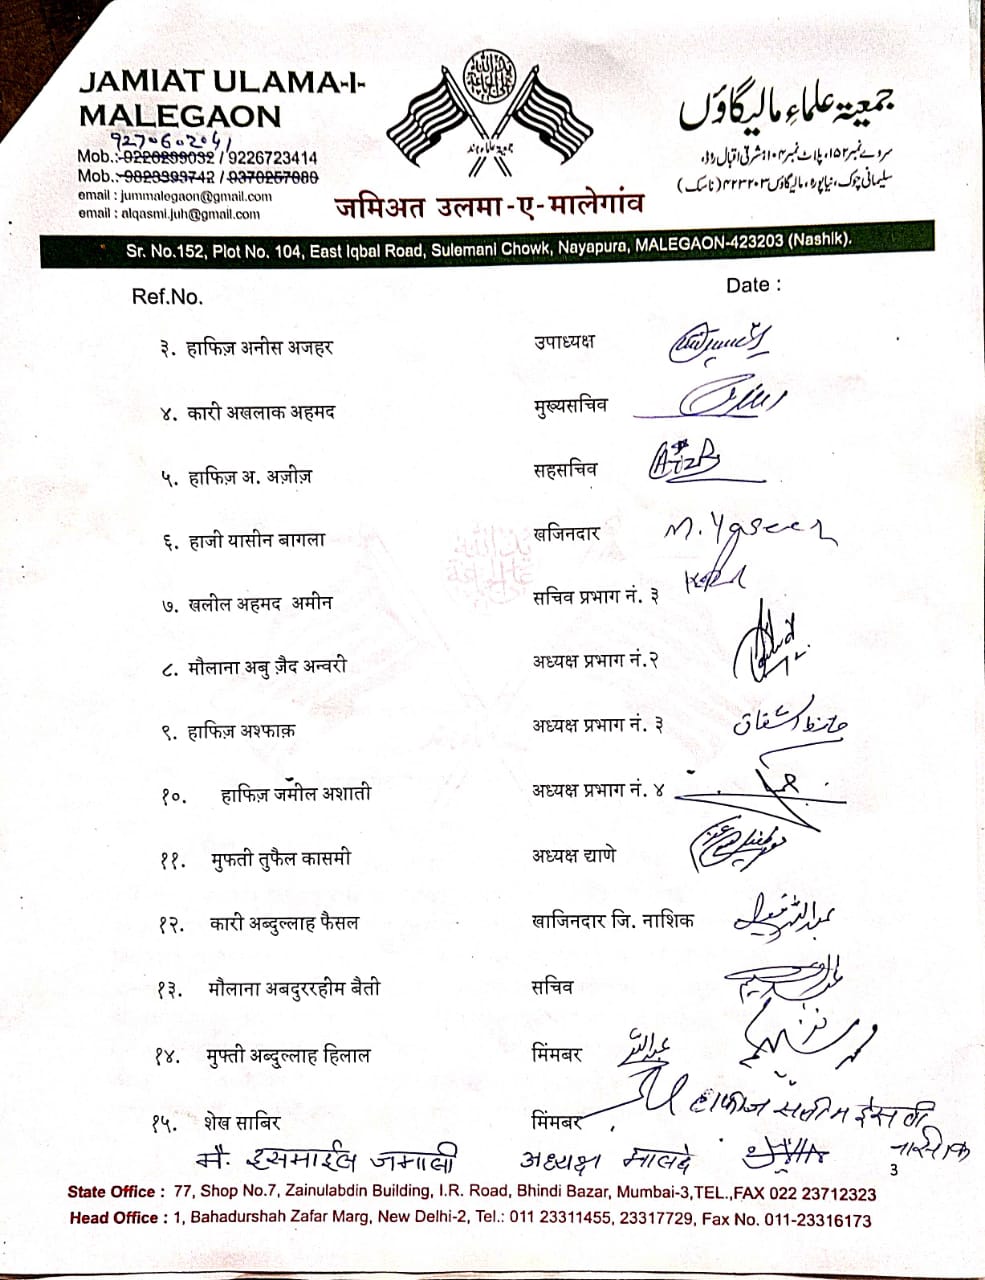 JAMIAT ULAMA-I-
MALEGAON
جمعیۃ علماء مالیگاؤں
9270602041
Mob.:-9226299032 / 9226723414
Mob.:-9823393742 / 9370257080
email : jummalegaon@gmail.com
email : alqasmi.juh@gmail.com
سروے نمبر ۱۵۲، پلاٹ نمبر ۱۰۴، مشرقی اقبال روڈ،
سلیمانی چوک، نیاپورہ، مالیگاؤں ۴۲۳۲۰۳ (ناسک)
जमिअत उलमा-ए-मालेगांव
Sr. No.152, Plot No. 104, East Iqbal Road, Sulemani Chowk, Nayapura, MALEGAON-423203 (Nashik).
Ref.No. Date :
३. हाफिज़ अनीस अजहर उपाध्यक्ष
४. कारी अखलाक अहमद मुख्यसचिव
५. हाफिज़ अ. अज़ीज़ सहसचिव
६. हाजी यासीन बागला खजिनदार M. Yaseen
७. खलील अहमद अमीन सचिव प्रभाग नं. ३
८. मौलाना अबु ज़ैद अन्वरी अध्यक्ष प्रभाग नं.२
९. हाफिज़ अश्फाक़ अध्यक्ष प्रभाग नं. ३ حافظ اشفاق
१०. हाफिज़ जमील अशाती अध्यक्ष प्रभाग नं. ४
११. मुफती तुफैल कासमी अध्यक्ष द्याणे
१२. कारी अब्दुल्लाह फैसल खाजिनदार जि. नाशिक
१३. मौलाना अबदुररहीम बैती सचिव
१४. मुफ्ती अब्दुल्लाह हिलाल मिंमबर عبداللہ
१५. शेख साबिर मिंमबर हाफीज सलीम
नासीक
मौ. इसमाईल जमाली अध्यक्ष मालदे
3
State Office : 77, Shop No.7, Zainulabdin Building, I.R. Road, Bhindi Bazar, Mumbai-3,TEL.,FAX 022 23712323
Head Office : 1, Bahadurshah Zafar Marg, New Delhi-2, Tel.: 011 23311455, 23317729, Fax No. 011-23316173